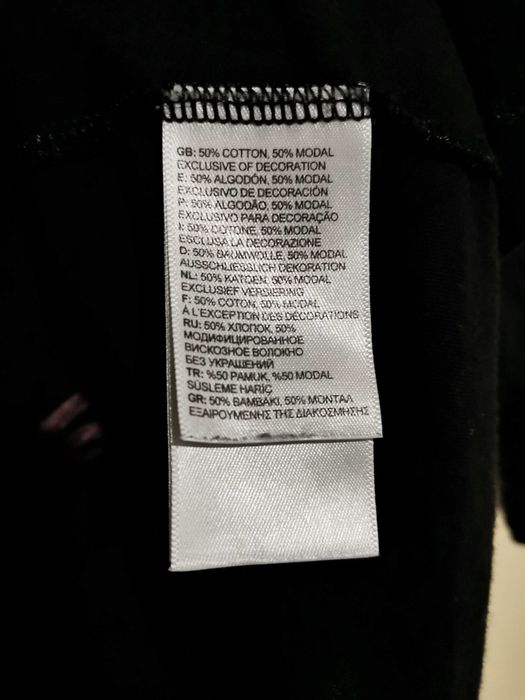 GB: 50% COTTON, 50% MODAL
EXCLUSIVE OF DECORATION
E: 50% ALGODÓN, 50% MODAL
EXCLUSIVO DE DECORACIÓN
P: 50% ALGODÃO, 50% MODAL
EXCLUSIVO PARA DECORAÇÃO
I: 50% COTONE, 50% MODAL
ESCLUSA LA DECORAZIONE
D: 50% BAUMWOLLE, 50% MODAL
AUSSCHLIESSLICH DEKORATION
NL: 50% KATOEN, 50% MODAL
EXCLUSIEF VERSIERING
F: 50% COTON, 50% MODAL
À L'EXCEPTION DES DÉCORATIONS
RU: 50% ХЛОПОК, 50%
МОДИФИЦИРОВАННОЕ
ВИСКОЗНОЕ ВОЛОКНО
БЕЗ УКРАШЕНИЙ
TR: %50 PAMUK, %50 MODAL
SÜSLEME HARİÇ
GR: 50% ΒΑΜΒΑΚΙ, 50% ΜΟΝΤΑΛ
ΕΞΑΙΡΟΥΜΕΝΗΣ ΤΗΣ ΔΙΑΚΟΣΜΗΣΗΣ